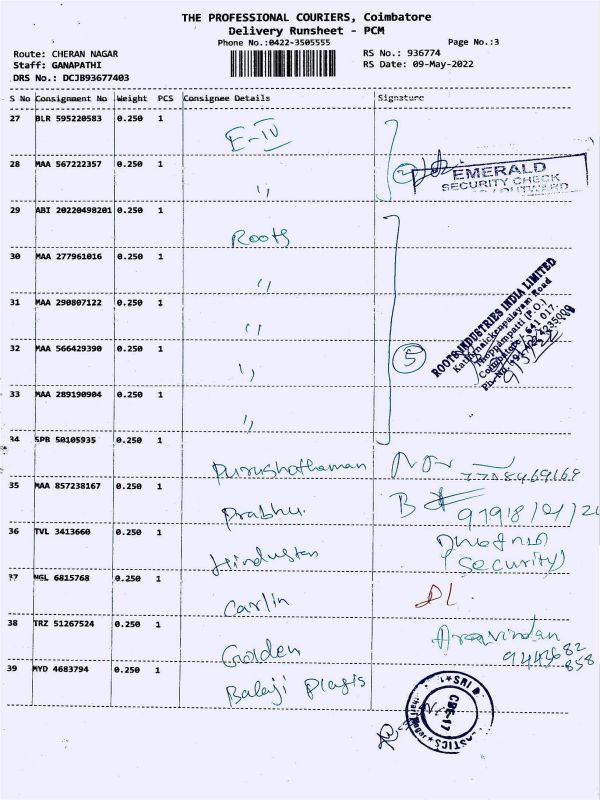 THE PROFESSIONAL COURIERS, Coimbatore
Delivery Runsheet - PCM
Phone No.:0422-3505555
Page No.:3
Route: CHERAN NAGAR
RS No.: 936774
Staff: GANAPATHI
RS Date: 09-May-2022
DRS No.: DCJB93677403
S No Consignment No Weight PCS Consignee Details Signature
27 BLR 595220583 0.250 1
E-IV
28 MAA 567222357 0.250 1
"
2
EMERALD
SECURITY CHECK
29 ABI 20220498201 0.250 1
Roots
30 MAA 277961016 0.250 1
"
31 MAA 290807122 0.250 1
"
ROOTS INDUSTRIES INDIA LIMITED
Thoppampatti (P.O.)
Coimbatore - 641 017.
32 MAA 566429390 0.250 1
"
5
33 MAA 289190904 0.250 1
"
34 SPB 50105935 0.250 1
Purushothaman
35 MAA 857238167 0.250 1
Prabhu.
36 TVL 3413660 0.250 1
Hindustan
(Security)
37 NGL 6815768 0.250 1
Carlin
38 TRZ 51267524 0.250 1
Golden
Aravindan
9443682
858
39 MYD 4683794 0.250 1
Balaji Plagis
SRI
CBE-17